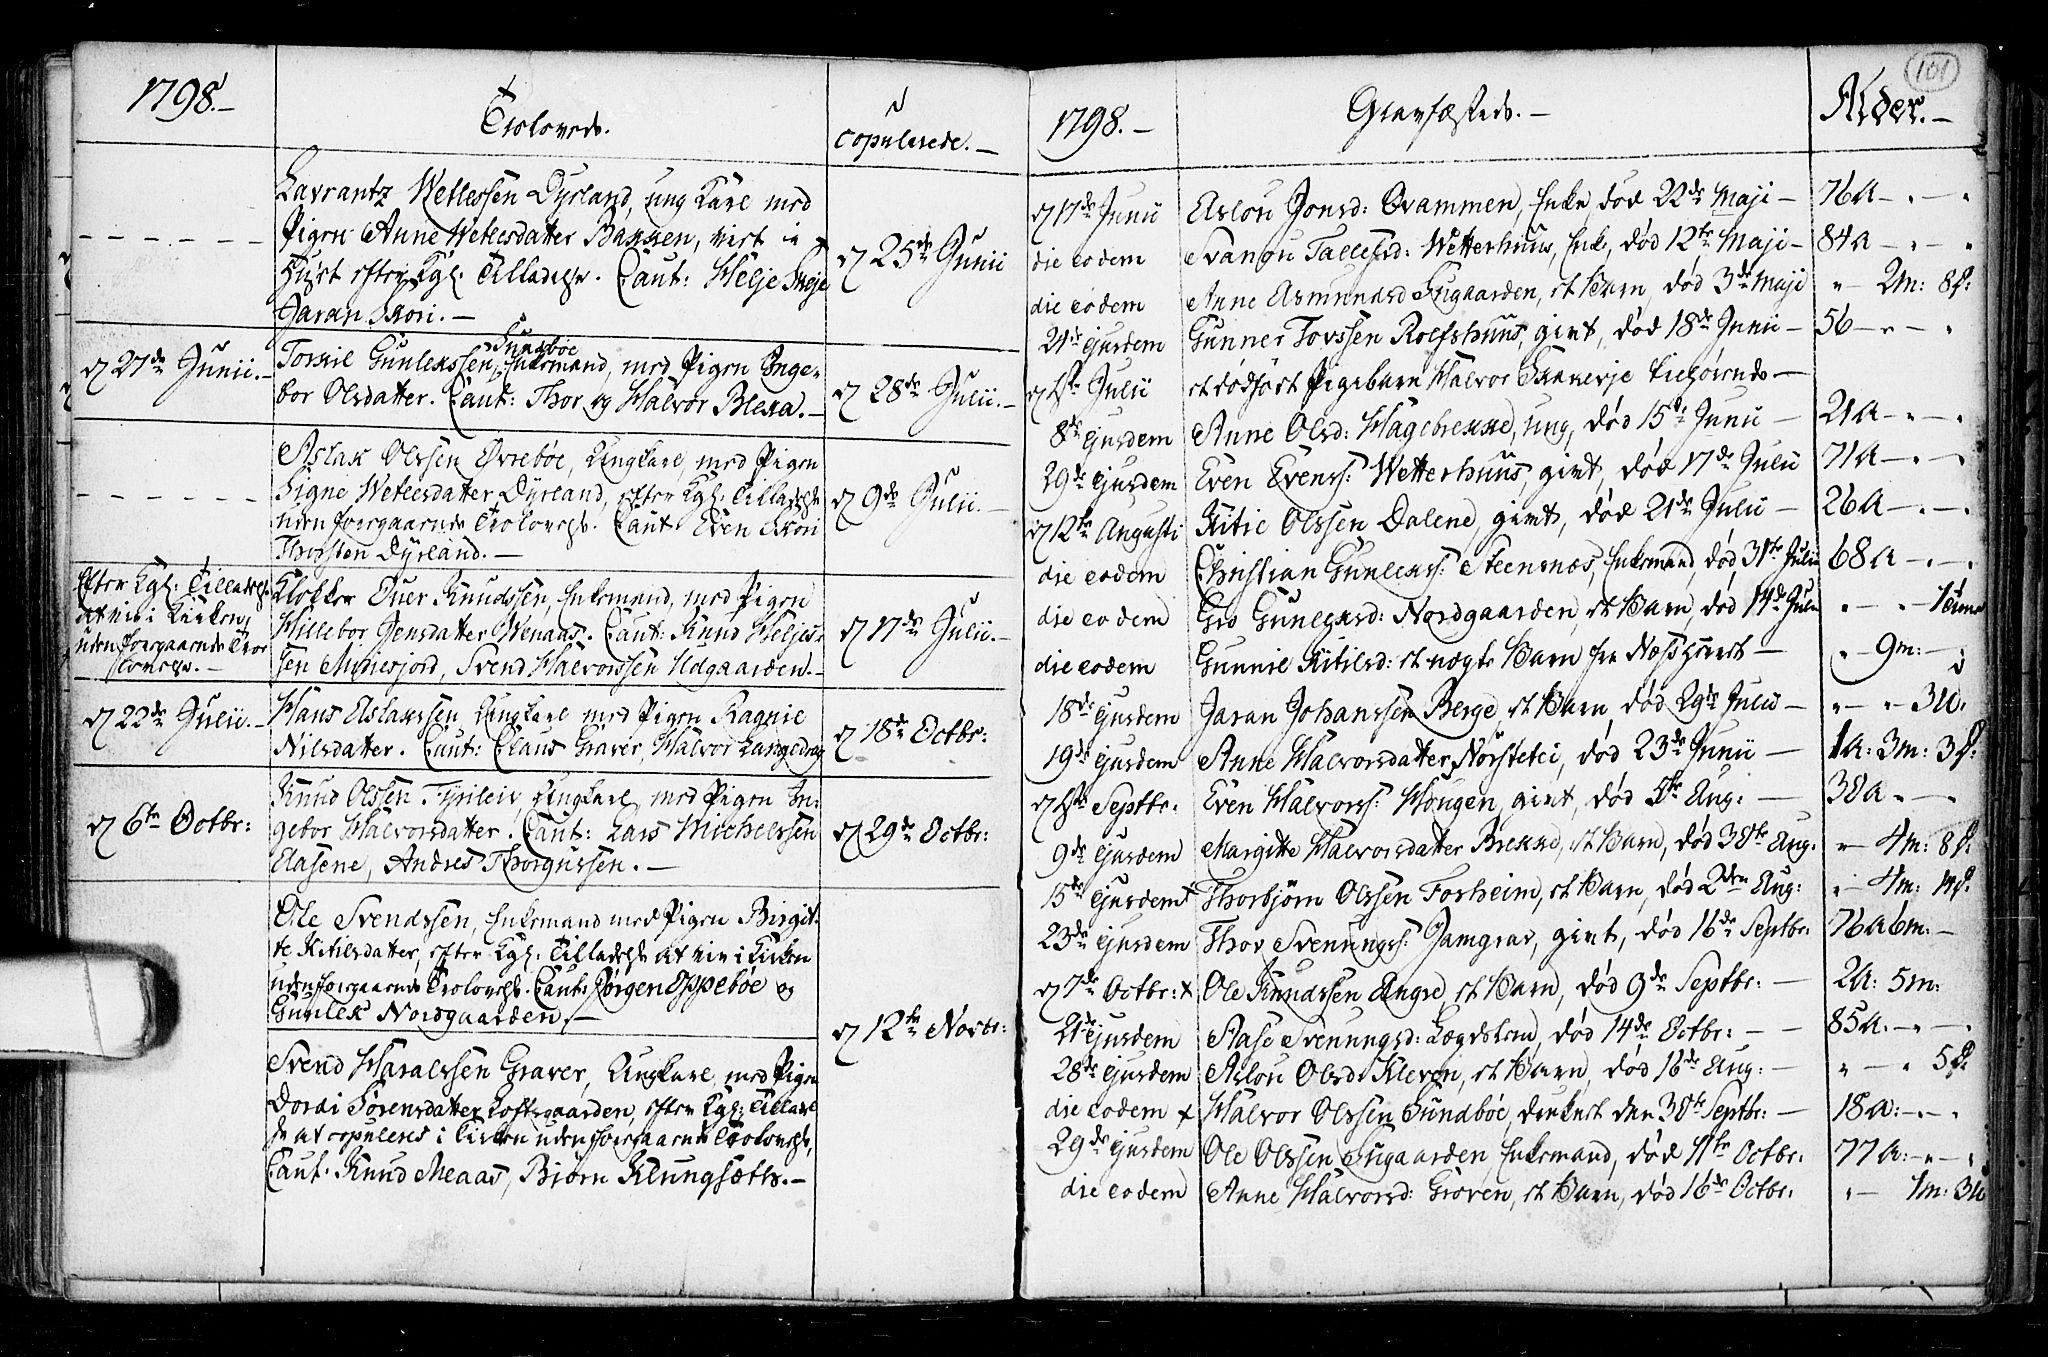 1798.-
Trolovede.
copulerede.-
Lavrantz Wetlessen Dyrland, ung Karl med
Pigen Anne Wetlesdatter Bakken, viet i
Huset efter Kgl: Tilladelse. Caut: Helje
Jaran Skori.-
d 25de Junii
d 27de Junii.-
Torkil Gunlekssen Sundbøe, Enkemand, med Pigen Inge-
bor Olsdatter. Caut: Thor og Halvor Bleka.-
d 28de Julii.-
Aslak Olssen Øvrebøe, Ungkarl, med Pigen
Signe Wetlesdatter Dyrland, efter Kgl: Tilladelse
uden foregaaende Trolovelse. Caut: Even Skori
Thorsten Dyrland.-
d 9de Julii.-
Efter Kgl: Tilladelse
at vies i Kirken,
uden foregaaende Tro-
lovelse.-
Klokker Ouer Knudssen, Enkemand, med Pigen
Hillebor Jensdatter Wenaas. Caut: Knud Heljes-
sen Minnesjord, Svend Halvorssen Udgaarden.-
d 17de Julii.-
d 22de Julii.-
Hans Aslakssen, Ungkarl med Pigen Ragnil
Nilsdatter. Caut: Claus Graver, Halvor Langedrag
d 18de Octbr:
d 6te Octbr:
Knud Olssen Tyrileiv, Ungkarl, med Pigen In-
gebor Halvorsdatter. Caut: Lars Michelssen
Aasene, Andres Thorgussen.-
d 29de Octbr:
Ole Svendssen, Enkemand med Pigen Birgit-
te Kitilsdatter, efter Kgl: Tilladelse at vies i Kirken
uden foregaaende Trolovelse. Caut: Jørgen Oppebøe og
Gunlek Nordgaarden.-
d 12te Novbr:
Svend Haralssen Graver, Ungkarl, med Pigen
Dordi Sørensdatter Loftsgaarden, efter Kgl: Tilladel-
se at copuleres i Kirken uden foregaaende Trolovelse,
Caut: Knud Meaas, Biørn Klungsæth.-
101
1798.-
Gravfæstede.-
Alder.-
d 17de Junii Aslou Jonsd: Qvammen, Enke, død 22de Maji- 76A-
die eodem Svanou Tallefsd: Wetterhuus, Enke, død 12te Maji- 84A-
die eodem Anne Asmundsd Sugaarden, et Barn, død 3de Maji " 2m: 8d:
24de ejusdem Gunner Torssen Rolfshuus, givt, død 18de Junii- 56-
d 1ste Julii et dødfødt Pigebarn Halvor Tilhørende-
8de ejusdem Anne Olsd: Hagebrekke, ung, død 15de Junii- 21A-
29de ejusdem Even Evens: Wetterhuus, givt, død 17de Julii 71A-
d 12te Augusti Kitil Olssen Dalene, givt, død 21de Julii- 26A-
die eodem Christian Gunleks: Steensnæs, Enkemand, død 31te Julii 68A-
die eodem Gro Gunleksd: Nordgaarden, et Barn, død 14de Julii " - 1time
die eodem Gunnil Kitilsd: et uægte Barn fra - " 9m:-
18de ejusdem Jaran Johanssen Berge, et Barn, død 29de Julii- " - " 3U.
19de ejusdem Anne Halvorsdatter Nørsteli, død 23de Junii- 1A: 3m: 3d:
d 1ste Septbr: Even Halvors: Hougen, givt, død 5te Aug:- 38A-
9de ejusdem Margitte Halvorsdatter Brekke, et Barn, død 30te Aug: " 4m: 8d:
15de ejusdem x Thorbjørn Olssen Forheim, et Barn, død 2den Aug: " 4m: 14d:
23de ejusdem Thor Svenungs: Jamgrav, givt, død 16de Septbr: 76A 6m:-
d 7de Octbr: x Ole Knudssen Angre, et Barn, død 9de Septbr:- 2A: 5m:
21de ejusdem Aase Svenungsd: Lægdslem, død 14de Octbr:-- 85A:-
28de ejusdem Aslou Olsd: Kleven, et Barn, død 16de Aug:- " - " 5d:
die eodem x Halvor Olssen Sundbøe, druknet den 30te Septbr:- 18A:-
29de ejusdem Ole Olssen Sugaarden Enkemand, død 11te Octbr: 77A:-
die eodem Anne Halvorsd: Groven, et Barn, død 16de Octbr: " - 1m: 3U